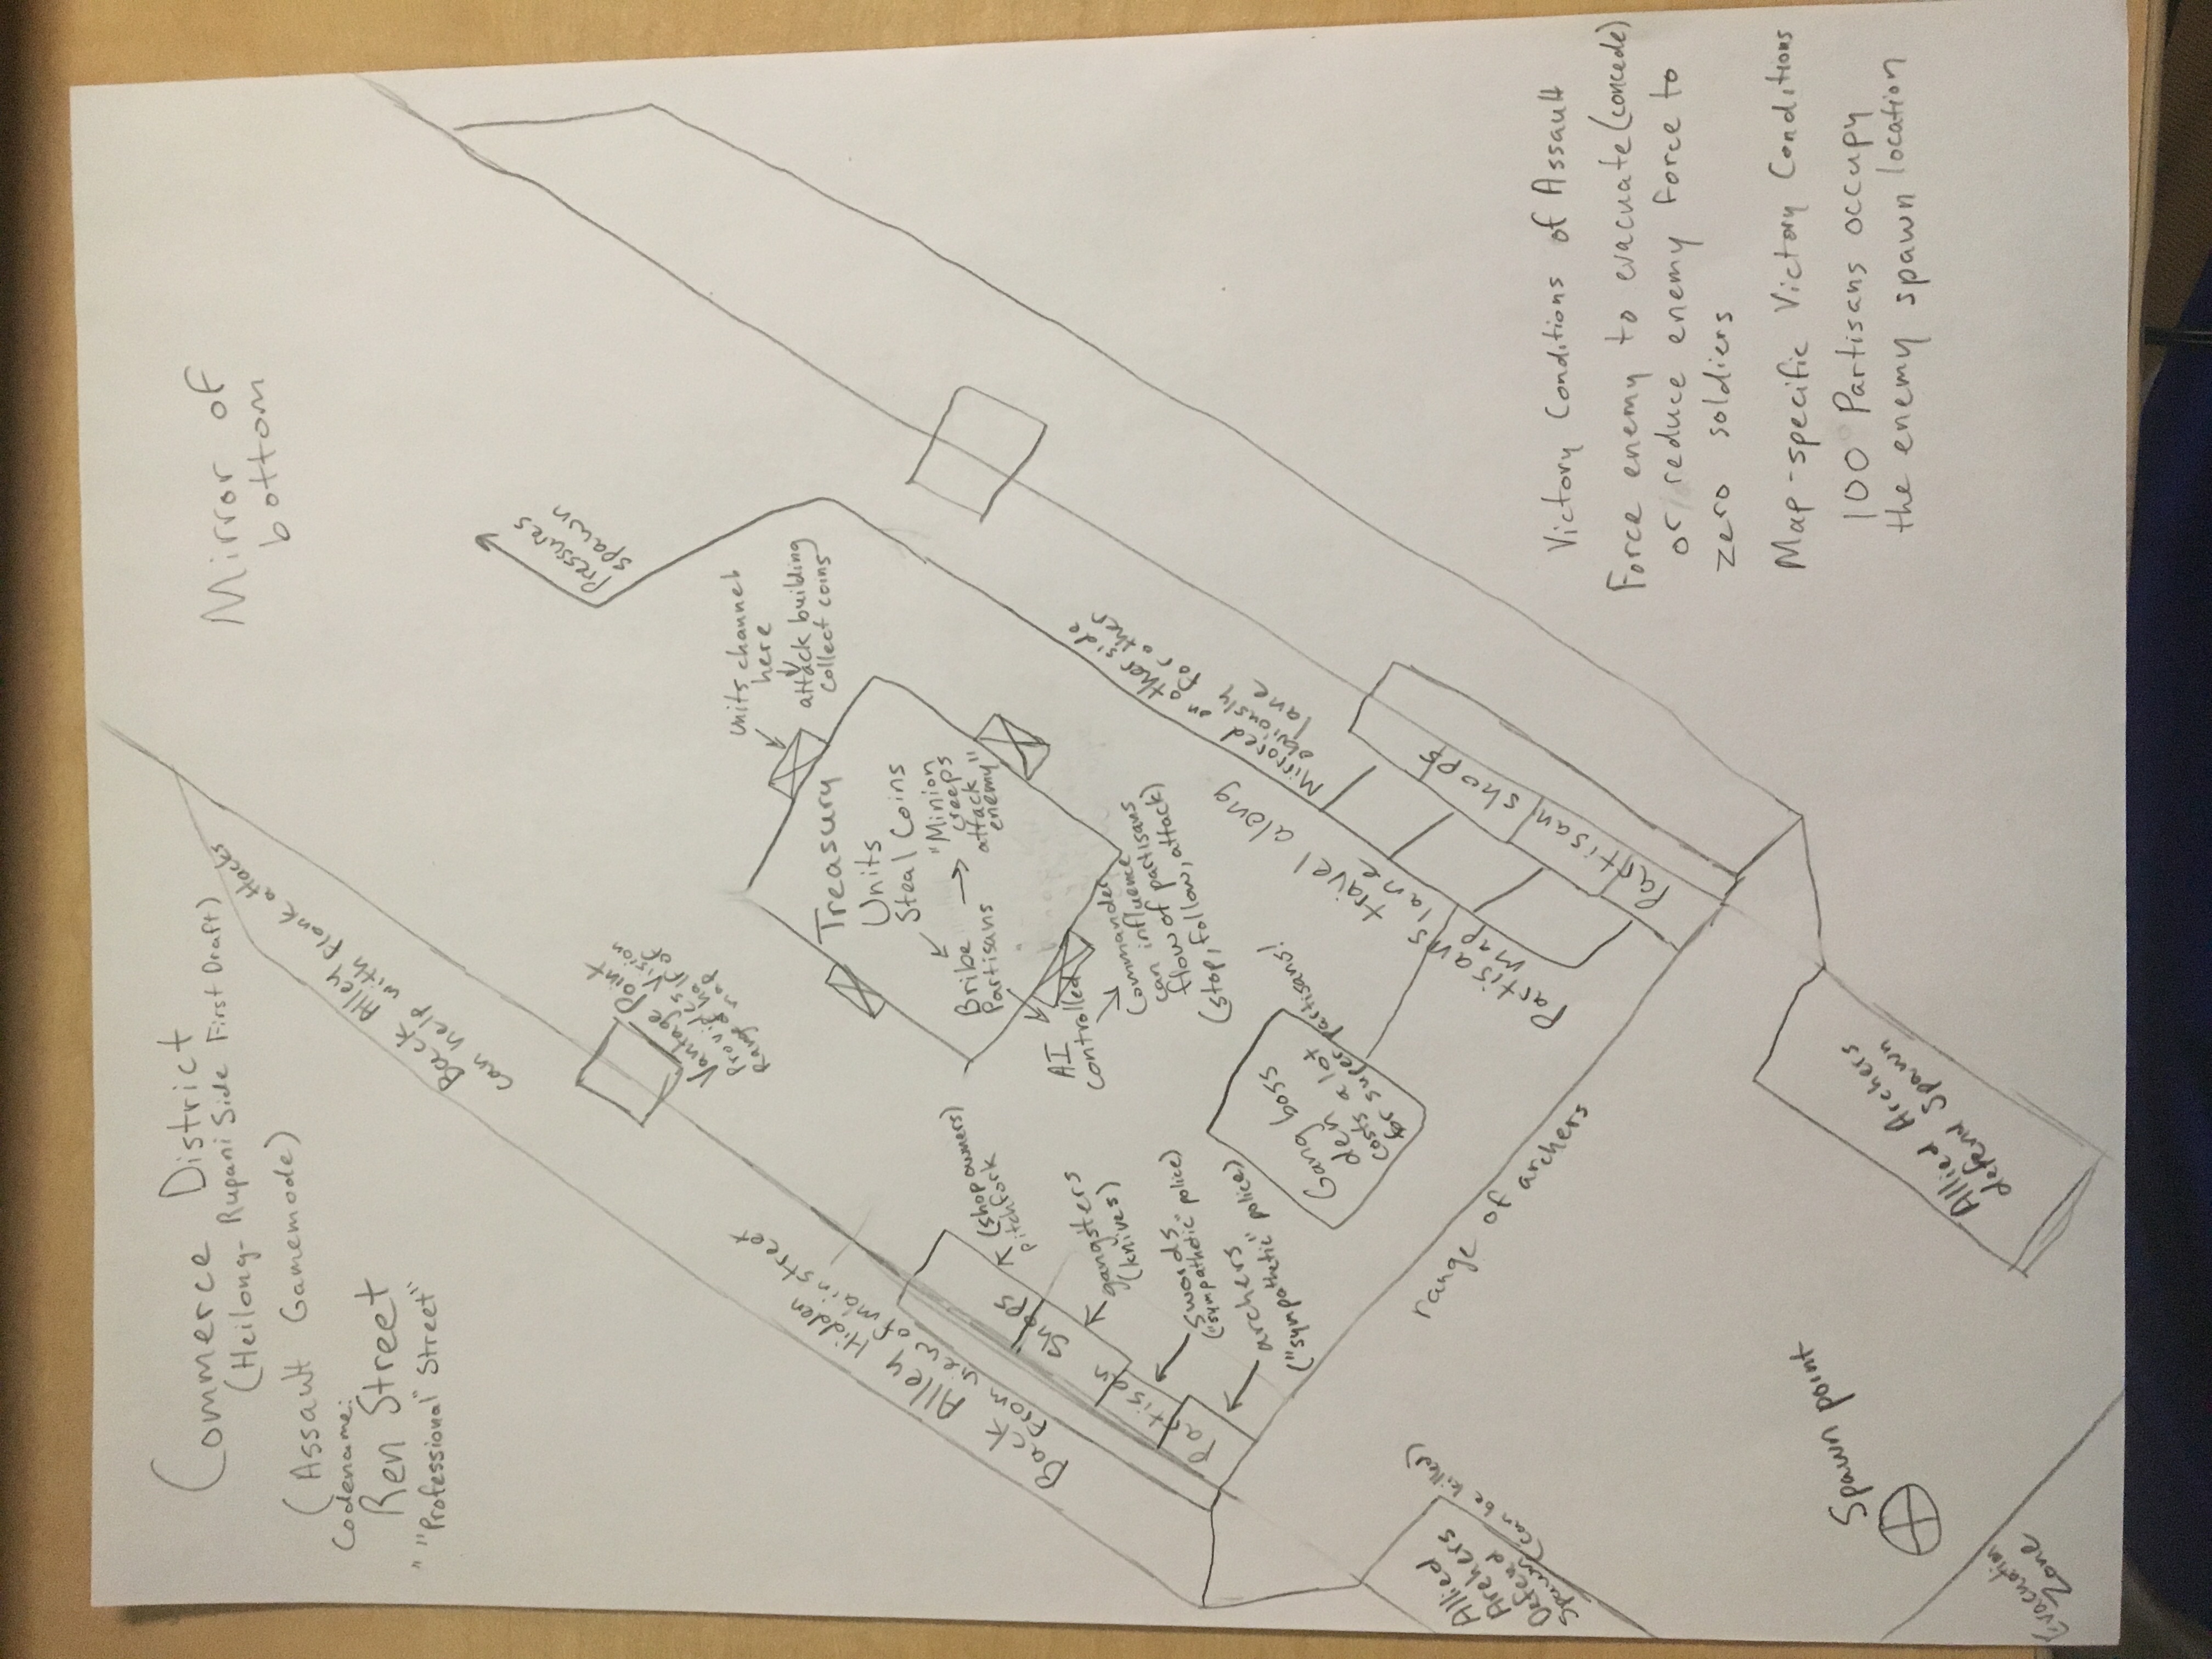 Commerce District
(Heilong- Rupani Side First Draft)
(Assault Gamemode)
Codename:
Ren Street
""Professional" Street"
Mirror of
bottom
Back Alley
can help with flank attacks
Pressures
spawn
Vantage Point
Provides Vision
Range of half of
map
Units channel
here
attack building
collect coins
Treasury
Units
Steal Coins
Bribe
Partisans
"Minion
creeps
attack
enemy"
AI
controlled
Commander
can influence
flow of partisans
(stop, follow, attack)
Back Alley Hidden
from view of main street
Partisan Shops
(shop owners)
pitchfork
gangsters
(knives)
swords
("sympathetic" police)
archers
("sympathetic" police)
Gang boss
den
costs a lot
for super partisans!
Partisans travel along
map lane
Mirrored on other side
obviously for other
lane
Partisan shops
range of archers
Allied
Archers
Defend
Spawn
(can be killed)
Victory Conditions of Assault
Force enemy to evacuate (concede)
or reduce enemy force to
zero soldiers
Map-specific Victory Conditions
100 Partisans occupy
the enemy spawn location
Spawn point
Allied Archers
defend Spawn
Evacuation
Zone